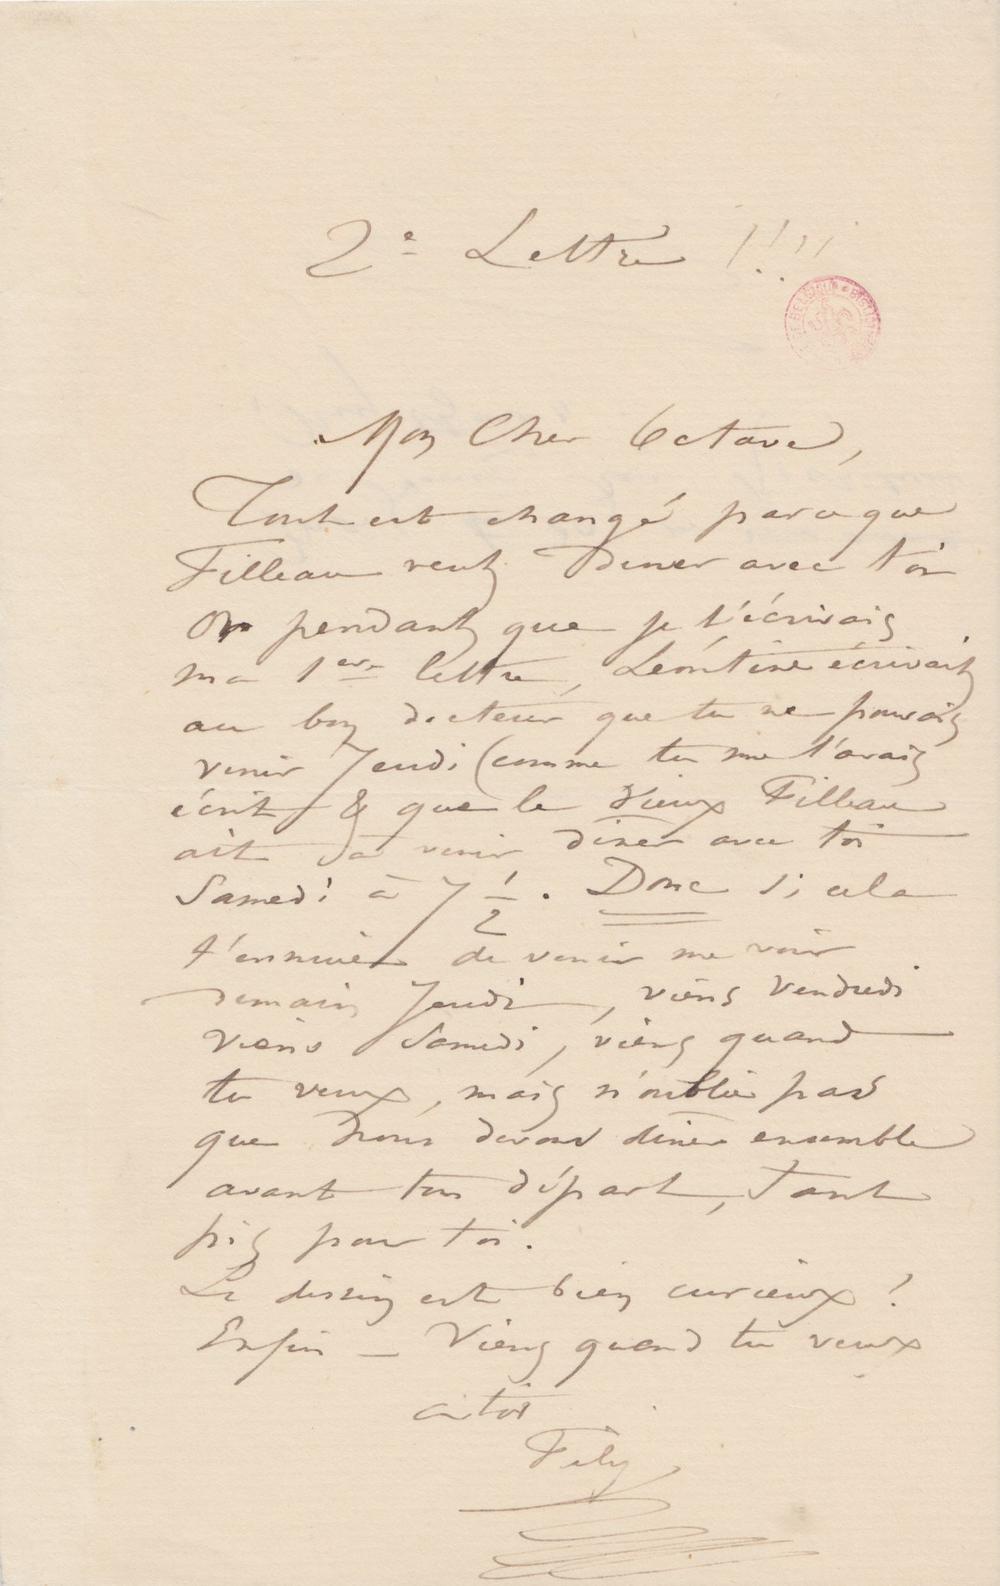 2e Lettre !!!!
BELGIQUE
Mon Cher Octave,
Tout est changé parceque
Filleau veut Diner avec toi
Or pendant que je t'écrivais
ma 1ere lettre, Léontine écrivait
au bon docteur que tu ne pouvais
venir Jeudi (comme tu me l'avais
écrit & que le Vieux Filleau
ait à venir diner avec toi
Samedi à 7 1/2. Donc si cela
t'ennuie de venir me voir
demain Jeudi, viens Vendredi
viens Samedi, viens quand
tu veux, mais n'oublie pas
que nous devons diner ensemble
avant ton départ, Tant
pis pour toi.
Le dessin est bien curieux !
Enfin — Viens quand tu veux
à toi
Fély